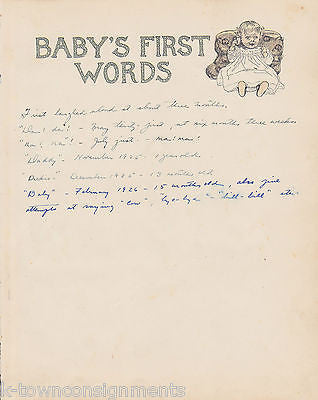 BABY'S FIRST
WORDS
First laughed aloud at about three months.
"Da! da!" - May thirty-first, at six months three weeks
"Ma! Ma!" - July first - ma! ma!
"Daddy" - November 1925 - 1 year old
December 1925 - 13 months old
"Baby" - February 1926 - 15 months old, also first
attempts at saying "cow", "bye-bye" - etc
k-townconsignments